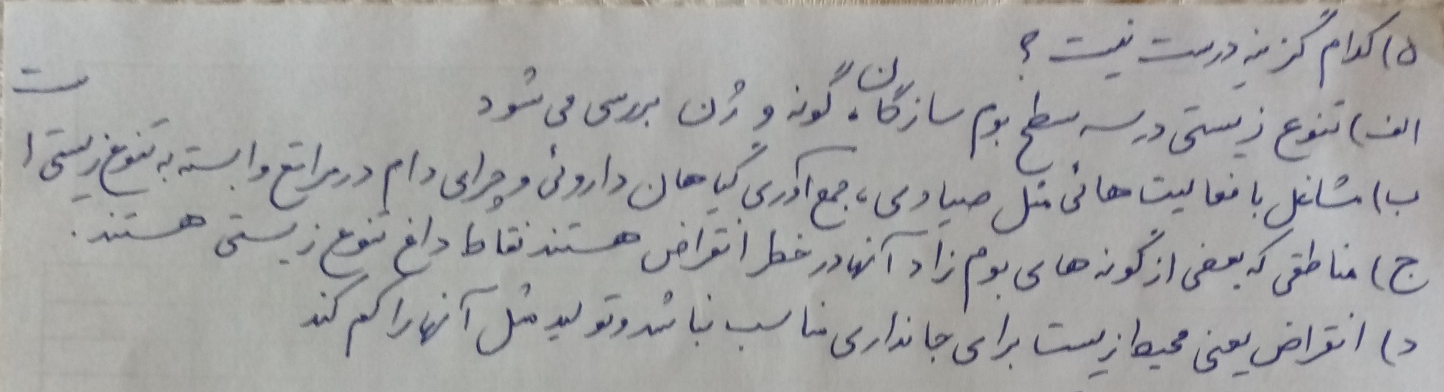 ۵) کدام گزینه درست نیست ؟
الف) تنوع زیستی در سه سطح بوم سازگان، گونه و ژن بررسی می شود
ب) مشاغل با فعالیت هائی مثل صیادی، جمع آوری گیاهان داروئی و چرای دام در مراتع وابسته به تنوع زیستی است
ج) مناطقی که بعضی از گونه های بوم زاد آنها در خطر انقراض هستند نقاط داغ تنوع زیستی هستند.
د) انقراض یعنی محیط زیست برای جانداری مناسب نباشد و تولید مثل آنها را کم کند